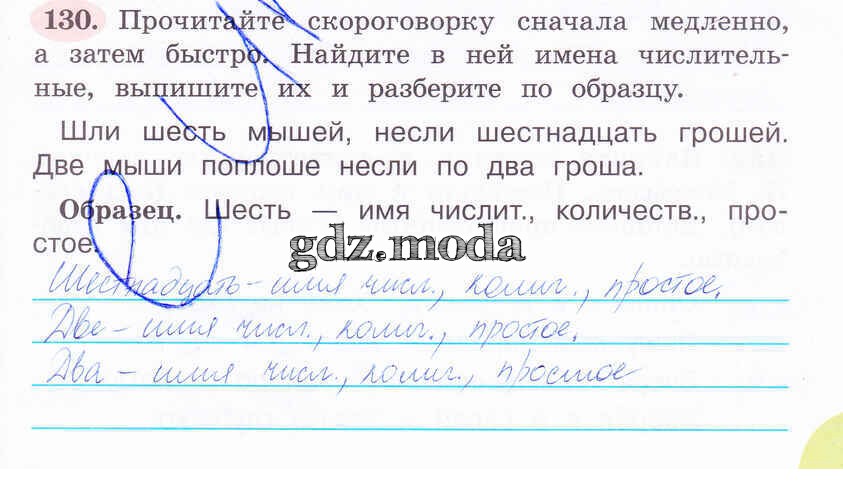 130. Прочитайте скороговорку сначала медленно,
а затем быстро. Найдите в ней имена числитель-
ные, выпишите их и разберите по образцу.
Шли шесть мышей, несли шестнадцать грошей.
Две мыши поплоше несли по два гроша.
Образец. Шесть — имя числит., количеств., про-
стое.
gdz.moda
Шестнадцать – имя числ., колич., простое.
Две – имя числ., колич., простое.
Два – имя числ., колич., простое